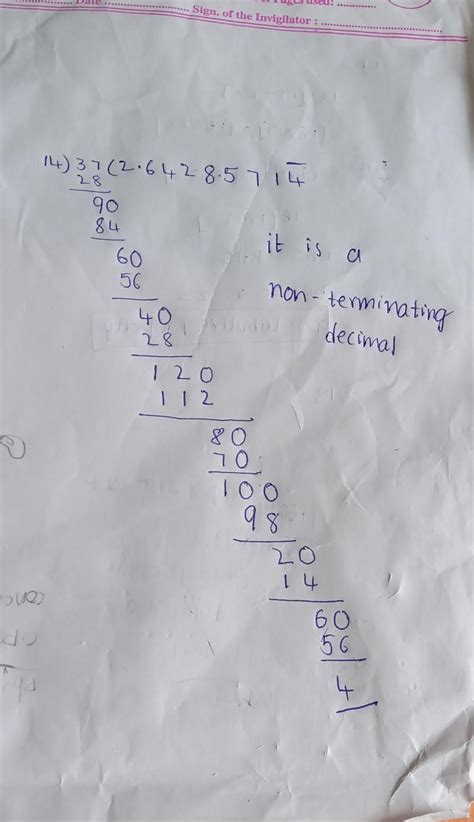 Date
Pages used:
Sign. of the Invigilator :
14)37(2.6428.5714̅
28
90
84
60
56
40
28
120
112
80
70
100
98
20
14
60
56
4
it is a
non-terminating
decimal